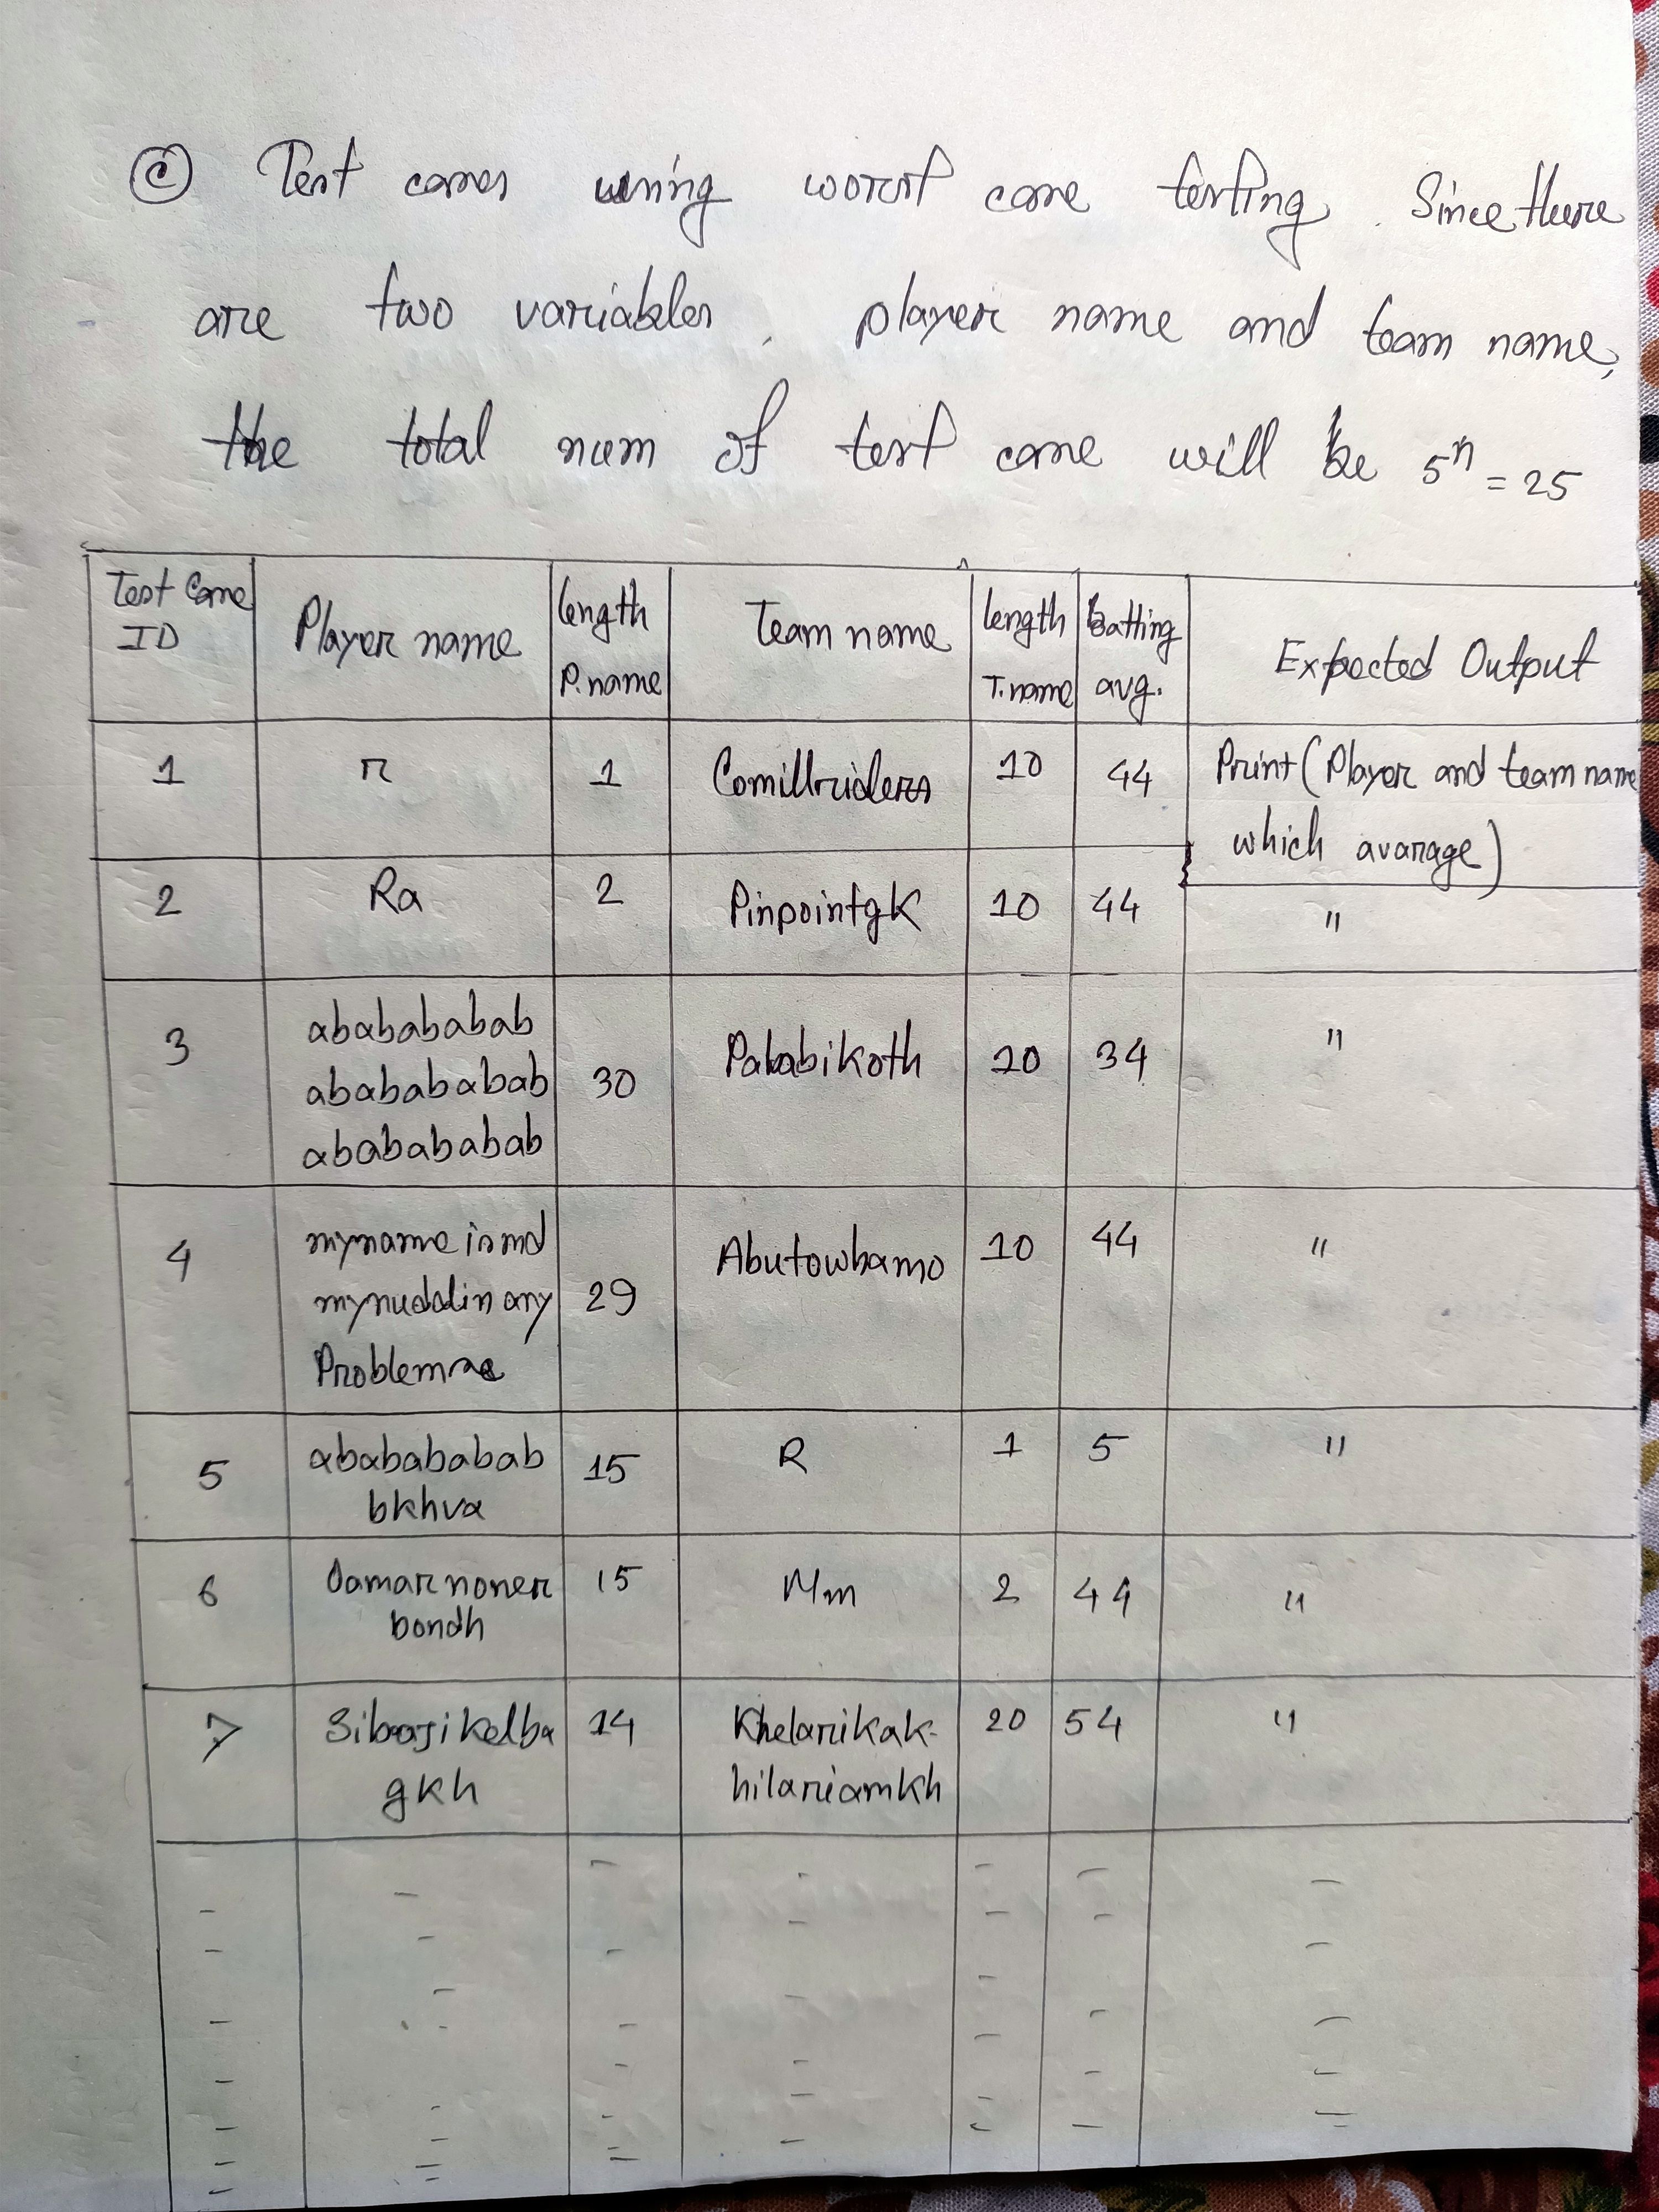 (c) Test cases using worst case testing. Since there
are two variables, player name and team name,
the total num of test case will be 5^n = 25
Test Case ID | Player name | length P.name | Team name | length T.name | batting avg. | Expected Output
1 | r | 1 | Comillriders | 10 | 44 | Print (Player and team name which avarage)
2 | Ra | 2 | Pinpointgk | 10 | 44 | "
3 | ababababab ababababab ababababab | 30 | Palabikoth | 10 | 34 | "
4 | mynameismd mynuddinany Problemme | 29 | Abutowhamo | 10 | 44 | "
5 | ababababab bkhva | 15 | R | 1 | 5 | "
6 | Oamar noner bondh | 15 | Mm | 2 | 44 | "
7 | Sibaji kelba gkh | 14 | Khelarikak-hilariamkh | 20 | 54 | "